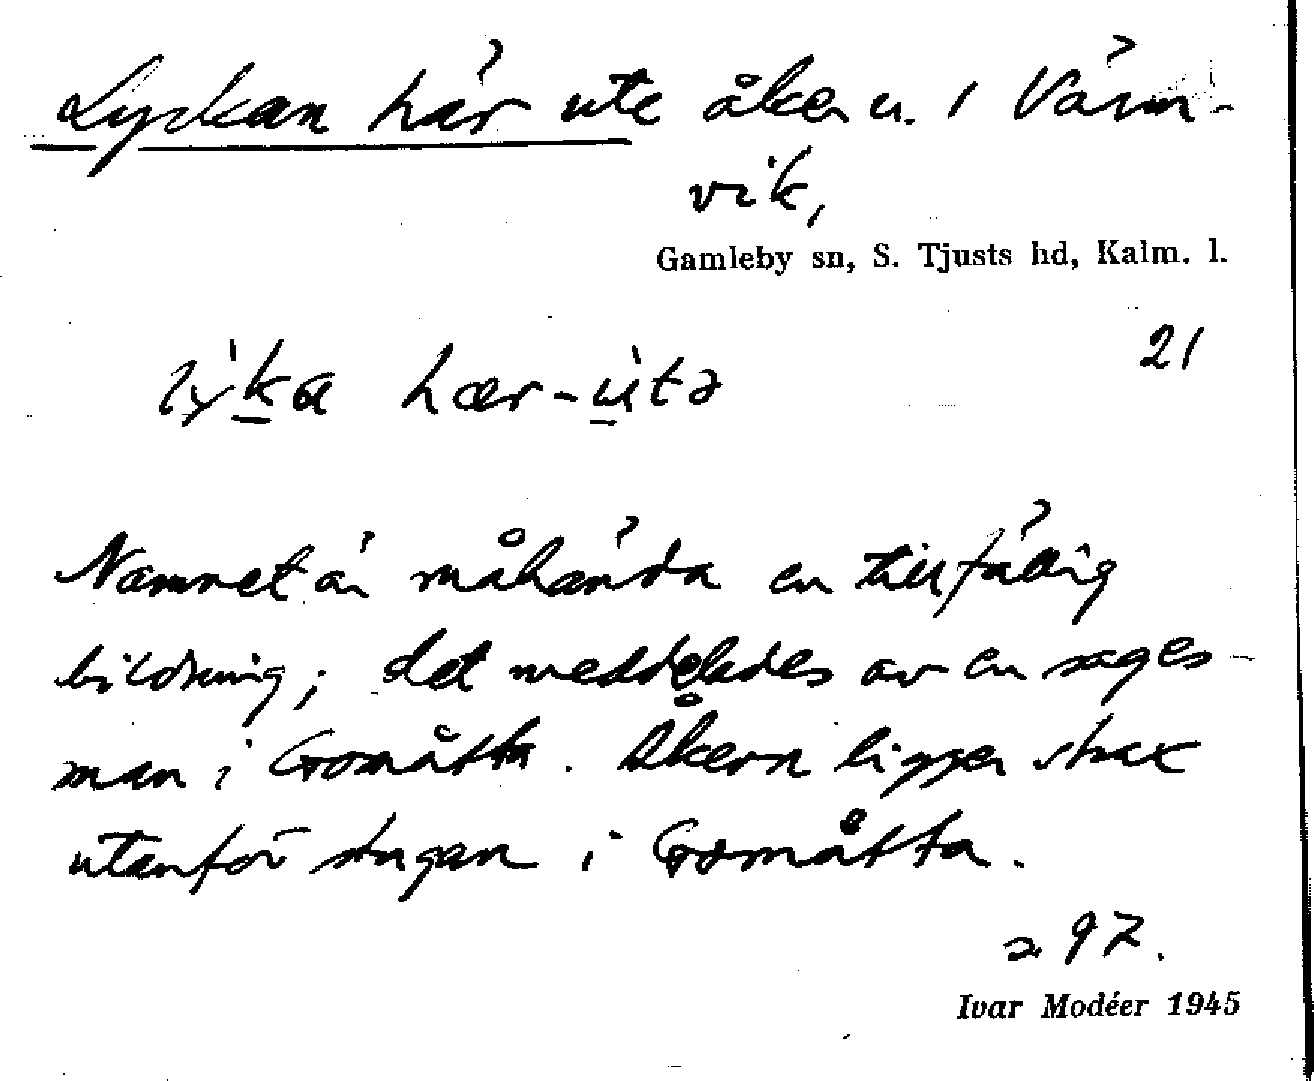 Lyckan här ute åker u. i Värm-
vik,
Gamleby sn, S. Tjusts hd, Kalm. l.
21
lýka hær-útə
Namnet är måhända en tillfällig
bildning; det meddelades av en sages-
man i Gomåtta. Åkern ligger strax
utanför stugan i Gomåtta.
a 97.
Ivar Modéer 1945